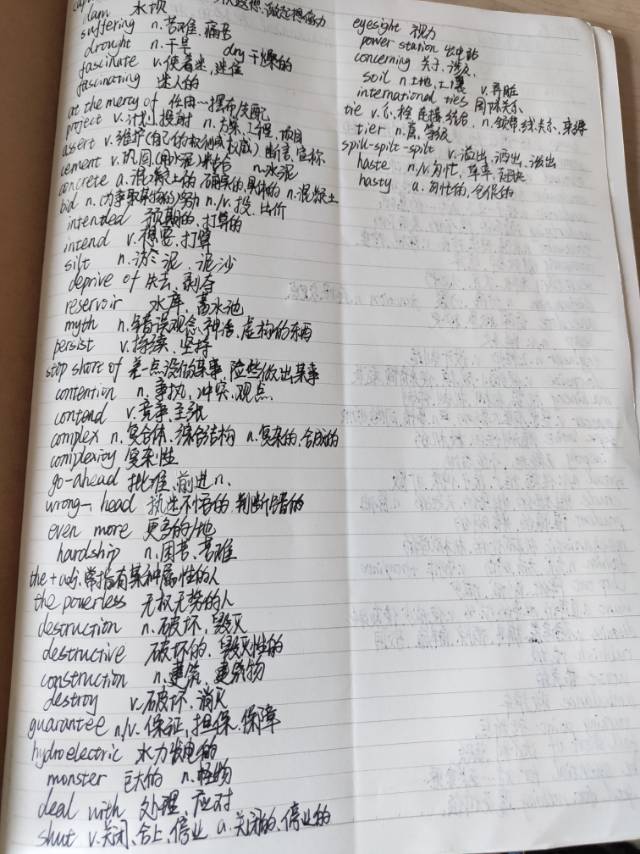 dam 水坝
suffering n.苦难、痛苦
drought n.干旱 dry 干燥的
fascinate v.使着迷、迷住
fascinating 迷人的
at the mercy of 任由…摆布/支配
project v.计划、投射 n.方案、工程、项目
assert v.维护(自己的权利或权威)、断言、宣称
cement v.巩固、(用水泥)粘合 n.水泥
concrete a.混凝土的、确实的、具体的 n.混凝土
bid n.(为争取某物的)努力 n./v.投、出价
intended 预期的、打算的
intend v.想要、打算
silt n.淤泥、泥沙
deprive of 失去、剥夺
reservoir 水库、蓄水池
myth n.错误观念、神话、虚构的东西
persist v.持续、坚持
stop short of 差一点没做某事、险些做出某事
contention n.争执、冲突、观点
contend v.竞争、主张
complex n.复合体、综合结构 a.复杂的、合成的
complexity 复杂性
go-ahead 批准、前进 n.
wrong-head 执迷不悟的、判断错的
even more 更多的/地
hardship n.困苦、苦难
the+adj.常指有某种属性的人
the powerless 无权无势的人
destruction n.破坏、毁灭
destructive 破坏的、毁灭性的
construction n.建筑、建筑物
destroy v.破坏、消灭
guarantee n./v.保证、担保、保障
hydroelectric 水力发电的
monster 巨大的 n.怪物
deal with 处理、应对
shut v.关闭、合上、停业 a.关闭的、停业的
eyesight 视力
power station 发电站
concerning 关于、涉及
soil n.土地、土壤 v.弄脏
international ties 国际关系
tie v.系、拴、连接、结合 n.领带、线、关系、束缚
tier n.层、等级
spill-spilt-spilt v.溢出、洒出、涌出
haste n./v.匆忙、草率、赶快
hasty a.匆忙的、仓促的